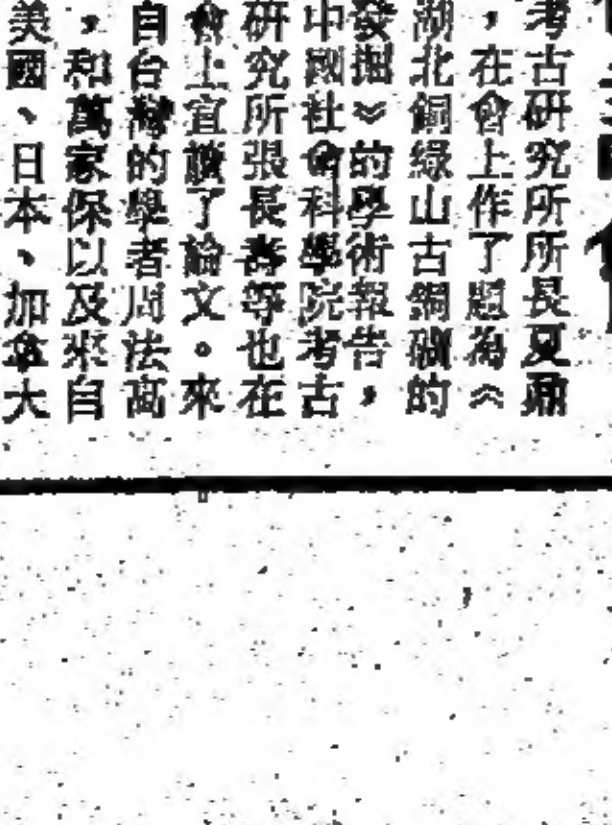 考古研究所所長夏鼐
，在會上作了題為《
湖北銅綠山古銅礦的
發掘》的學術報告，
中國社會科學院考古
研究所張長壽等也在
會上宣讀了論文。來
自台灣的學者周法高
，和萬家保以及來自
美國、日本、加拿大